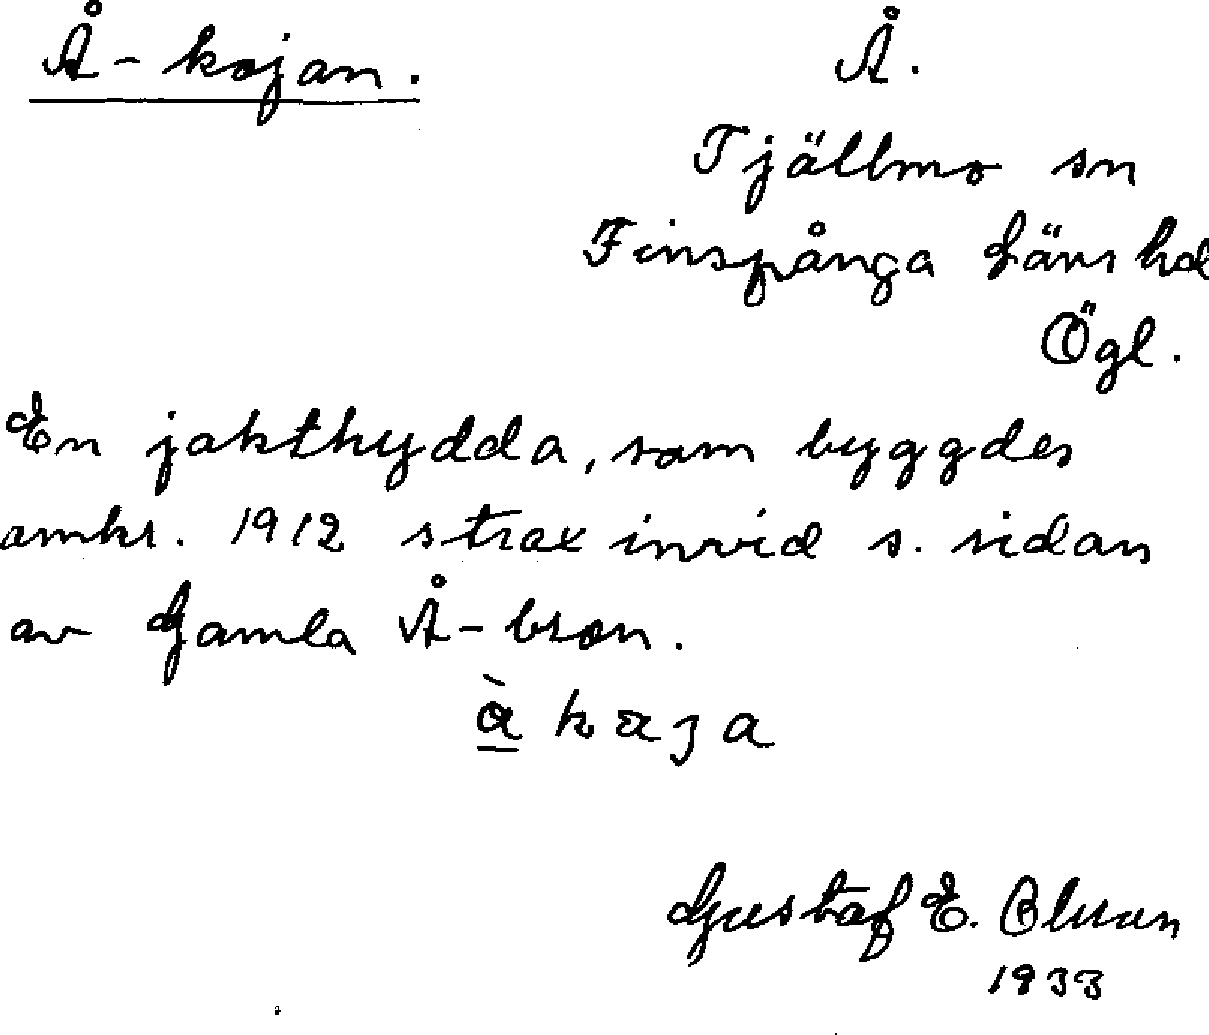 Å-kojan.
Å.
Tjällmo sn
Finspånga Läns hd
Ögl.
En jakthydda, som byggdes
omkr. 1912 strax invid s. sidan
av Gamla Å-bron.
Gustaf E. Olsson
1933